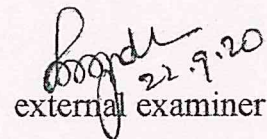 22.9.20
external examiner